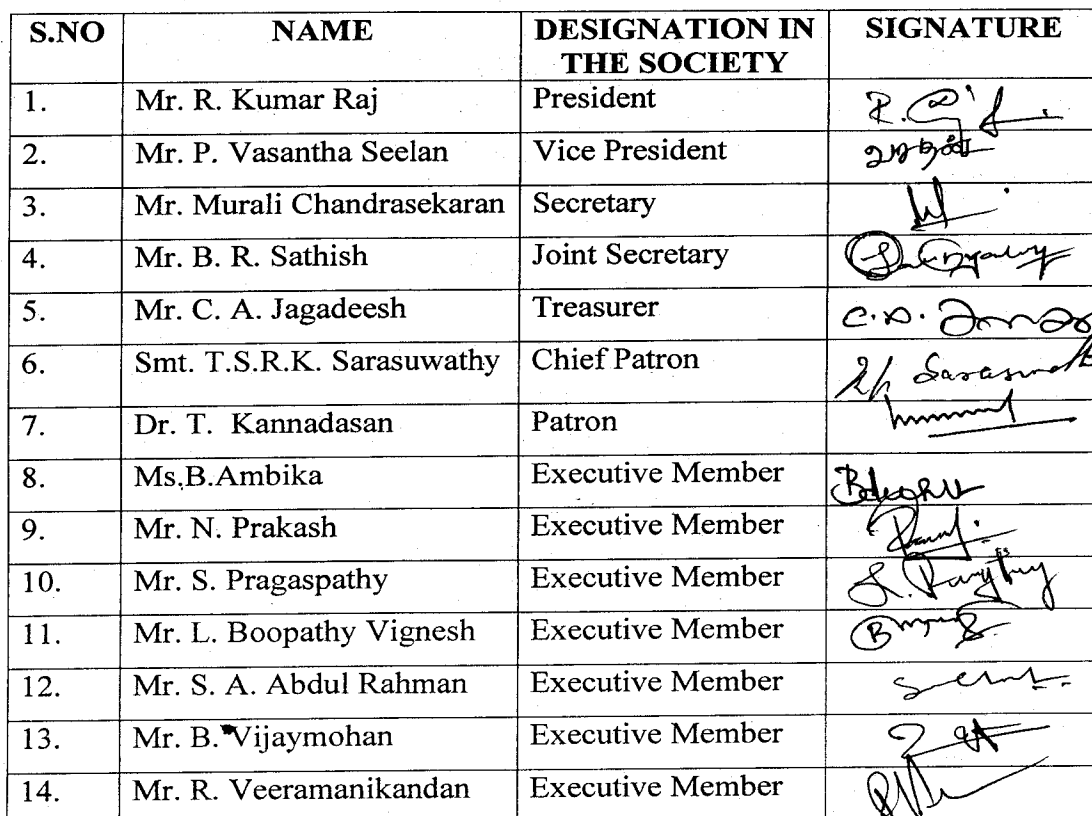 S.NO NAME DESIGNATION IN THE SOCIETY SIGNATURE
1. Mr. R. Kumar Raj President
2. Mr. P. Vasantha Seelan Vice President
3. Mr. Murali Chandrasekaran Secretary
4. Mr. B. R. Sathish Joint Secretary
5. Mr. C. A. Jagadeesh Treasurer
6. Smt. T.S.R.K. Sarasuwathy Chief Patron
7. Dr. T. Kannadasan Patron
8. Ms.B.Ambika Executive Member
9. Mr. N. Prakash Executive Member
10. Mr. S. Pragaspathy Executive Member
11. Mr. L. Boopathy Vignesh Executive Member
12. Mr. S. A. Abdul Rahman Executive Member
13. Mr. B. Vijaymohan Executive Member
14. Mr. R. Veeramanikandan Executive Member